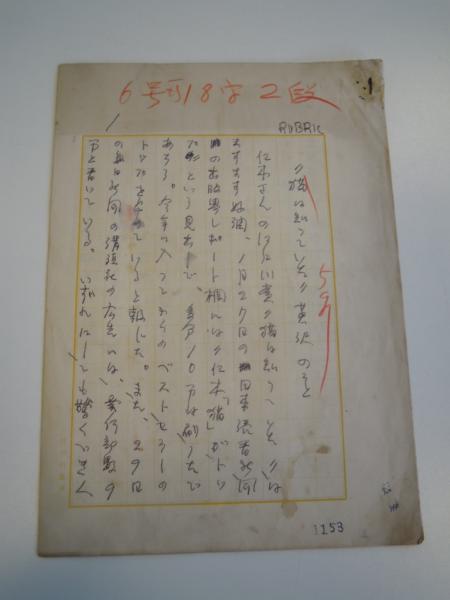 6号 18字 2段
RUBRIC
〃猫は知っていた〃 のこと
59
仁木さんの江戸川賞〃猫は知っていた〃は
ますます好調、1月27日の日本読書新聞
の出版界レポート欄には〃仁木「猫」がトッ
プ〃という見出しで、多分10万は刷ったで
あろう。今年に入ってからのベストセラーの
トップをきっていると報じた。また、29日
の 新聞の講談社の広告には、発行部数9
万と書いている。いずれにしても驚くべき
1153